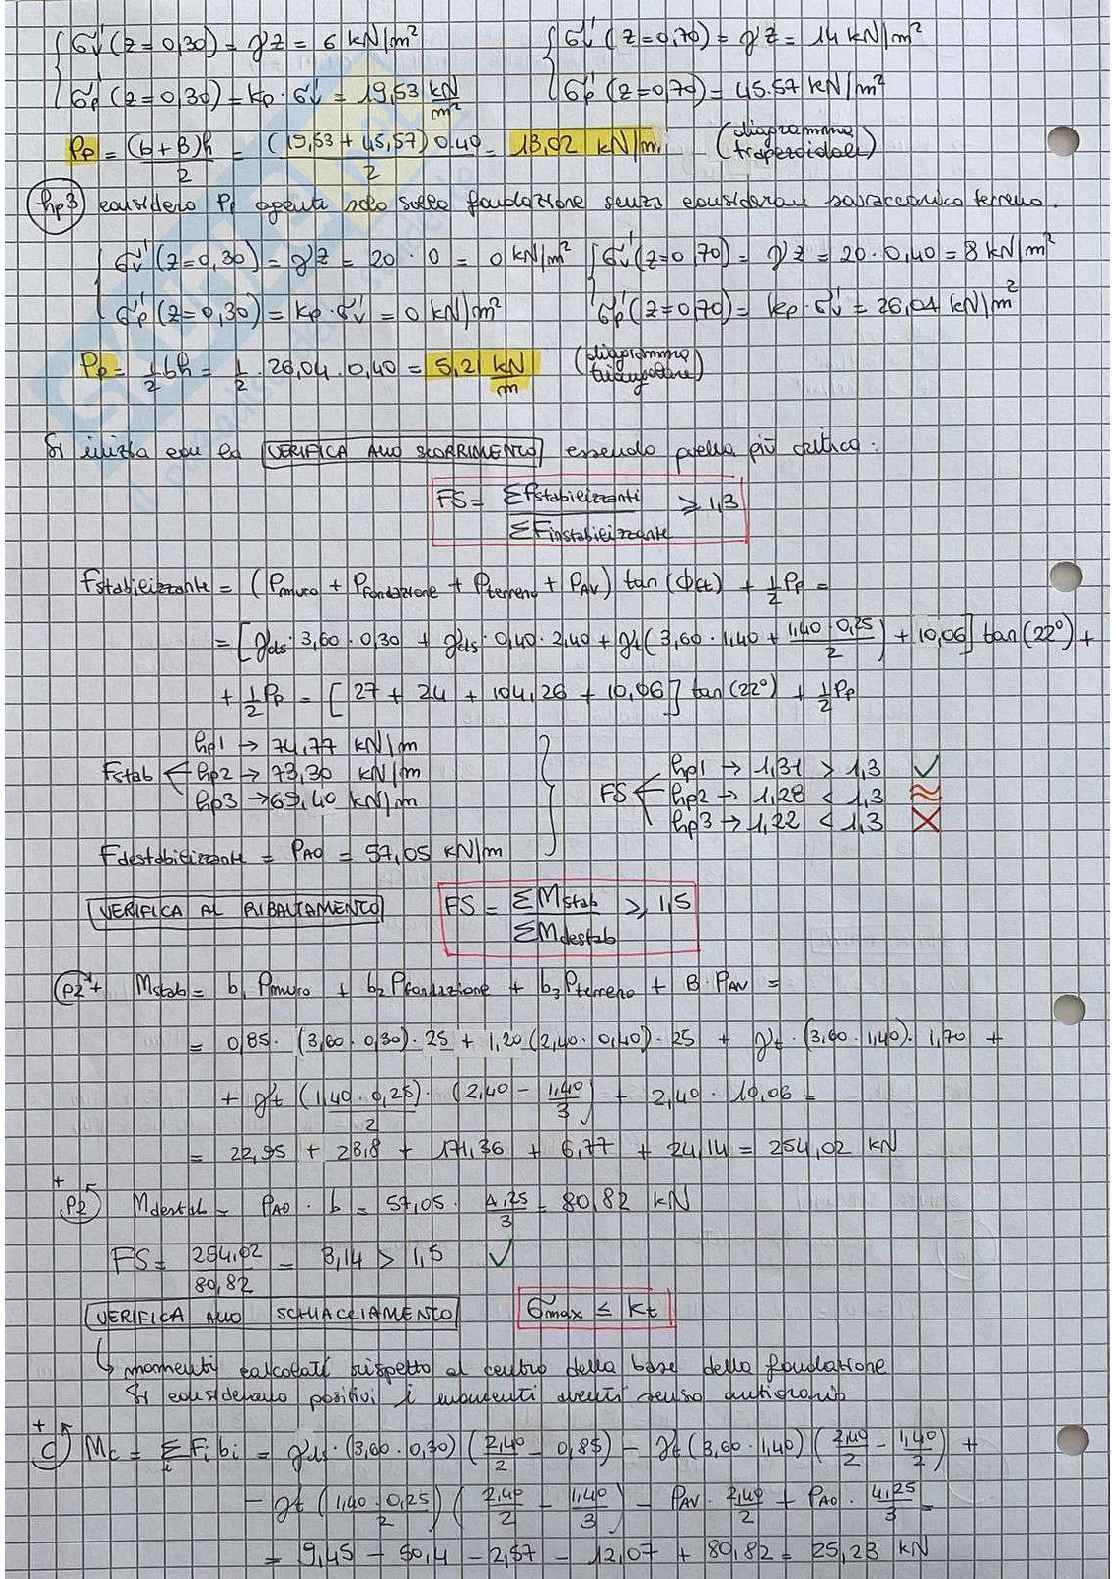 σv' (z=0,30) = γ'z = 6 kN/m² σv' (z=0,70) = γ'z = 14 kN/m²
σp' (z=0,30) = kp · σv' = 19,53 kN/m² σp' (z=0,70) = 45.57 kN/m²
Pp = (b+B)h / 2 = (19,53 + 45,57) 0.40 / 2 = 13,02 kN/m (diagramma trapezoidale)
hp3) considero Pp agente solo sulla fondazione senza considerare sovraccarico terreno.
σv' (z=0,30) = γ'z = 20 · 0 = 0 kN/m² σv' (z=0,70) = γ'z = 20 · 0,40 = 8 kN/m²
σp' (z=0,30) = kp · σv' = 0 kN/m² σp' (z=0,70) = kp · σv' = 26,04 kN/m²
Pp = 1/2 bh = 1/2 · 26,04 · 0,40 = 5,21 kN/m (diagramma triangolare)
Si inizia con la VERIFICA ALLO SCORRIMENTO essendo quella più critica:
FS = ΣFstabilizzanti / ΣFinstabilizzante ⩾ 1,3
Fstabilizzante = (Pmuro + Pfondazione + Pterreno + PAV) tan(ϕct) + 1/2 Pp =
= [γcls · 3,60 · 0,30 + γcls · 0,40 · 2,40 + γt (3,60 · 1,40 + 1,40 · 0,25 / 2) + 10,06] tan(22°) +
+ 1/2 Pp = [27 + 24 + 104,26 + 10,06] tan(22°) + 1/2 Pp
hp1 → 74,77 kN/m
Fstab hp2 → 73,30 kN/m
hp3 → 69,40 kN/m
FS hp1 → 1,31 > 1,3 ✓
hp2 → 1,28 < 1,3 ≈
hp3 → 1,22 < 1,3 X
Fdestabilizzante = PAO = 57,05 kN/m
VERIFICA AL RIBALTAMENTO FS = ΣMstab / ΣMdestab ⩾ 1,5
P2 + Mstab = b₁ Pmuro + b₂ Pfondazione + b₃ Pterreno + B · PAV =
= 0,85 · (3,60 · 0,30) · 25 + 1,20 (2,40 · 0,40) · 25 + γt · (3,60 · 1,40) · 1,70 +
+ γt (1,40 · 0,25 / 2) · (2,40 - 1,40/3) + 2,40 · 10,06 =
= 22,95 + 28,8 + 171,36 + 6,77 + 24,14 = 254,02 kN
+ P2 Mdestab = PAO · b = 57,05 · 4,25/3 = 80,82 kN
FS = 254,02 / 80,82 = 3,14 > 1,5 ✓
VERIFICA ALLO SCHIACCIAMENTO σmax ≤ kt
↳ momenti calcolati rispetto al centro della base della fondazione
Si considerano positivi i momenti aventi senso antiorario
+ C Mc = Σi Fi bi = γcls · (3,60 · 0,30) (2,40/2 - 0,85) - γt (3,60 · 1,40) (2,40/2 - 1,40/2) +
- γt (1,40 · 0,25 / 2) (2,40/2 - 1,40/3) - PAV · 2,40/2 + PAO · 4,25/3 =
= 9,45 - 50,4 - 2,57 - 12,07 + 80,82 = 25,23 kN